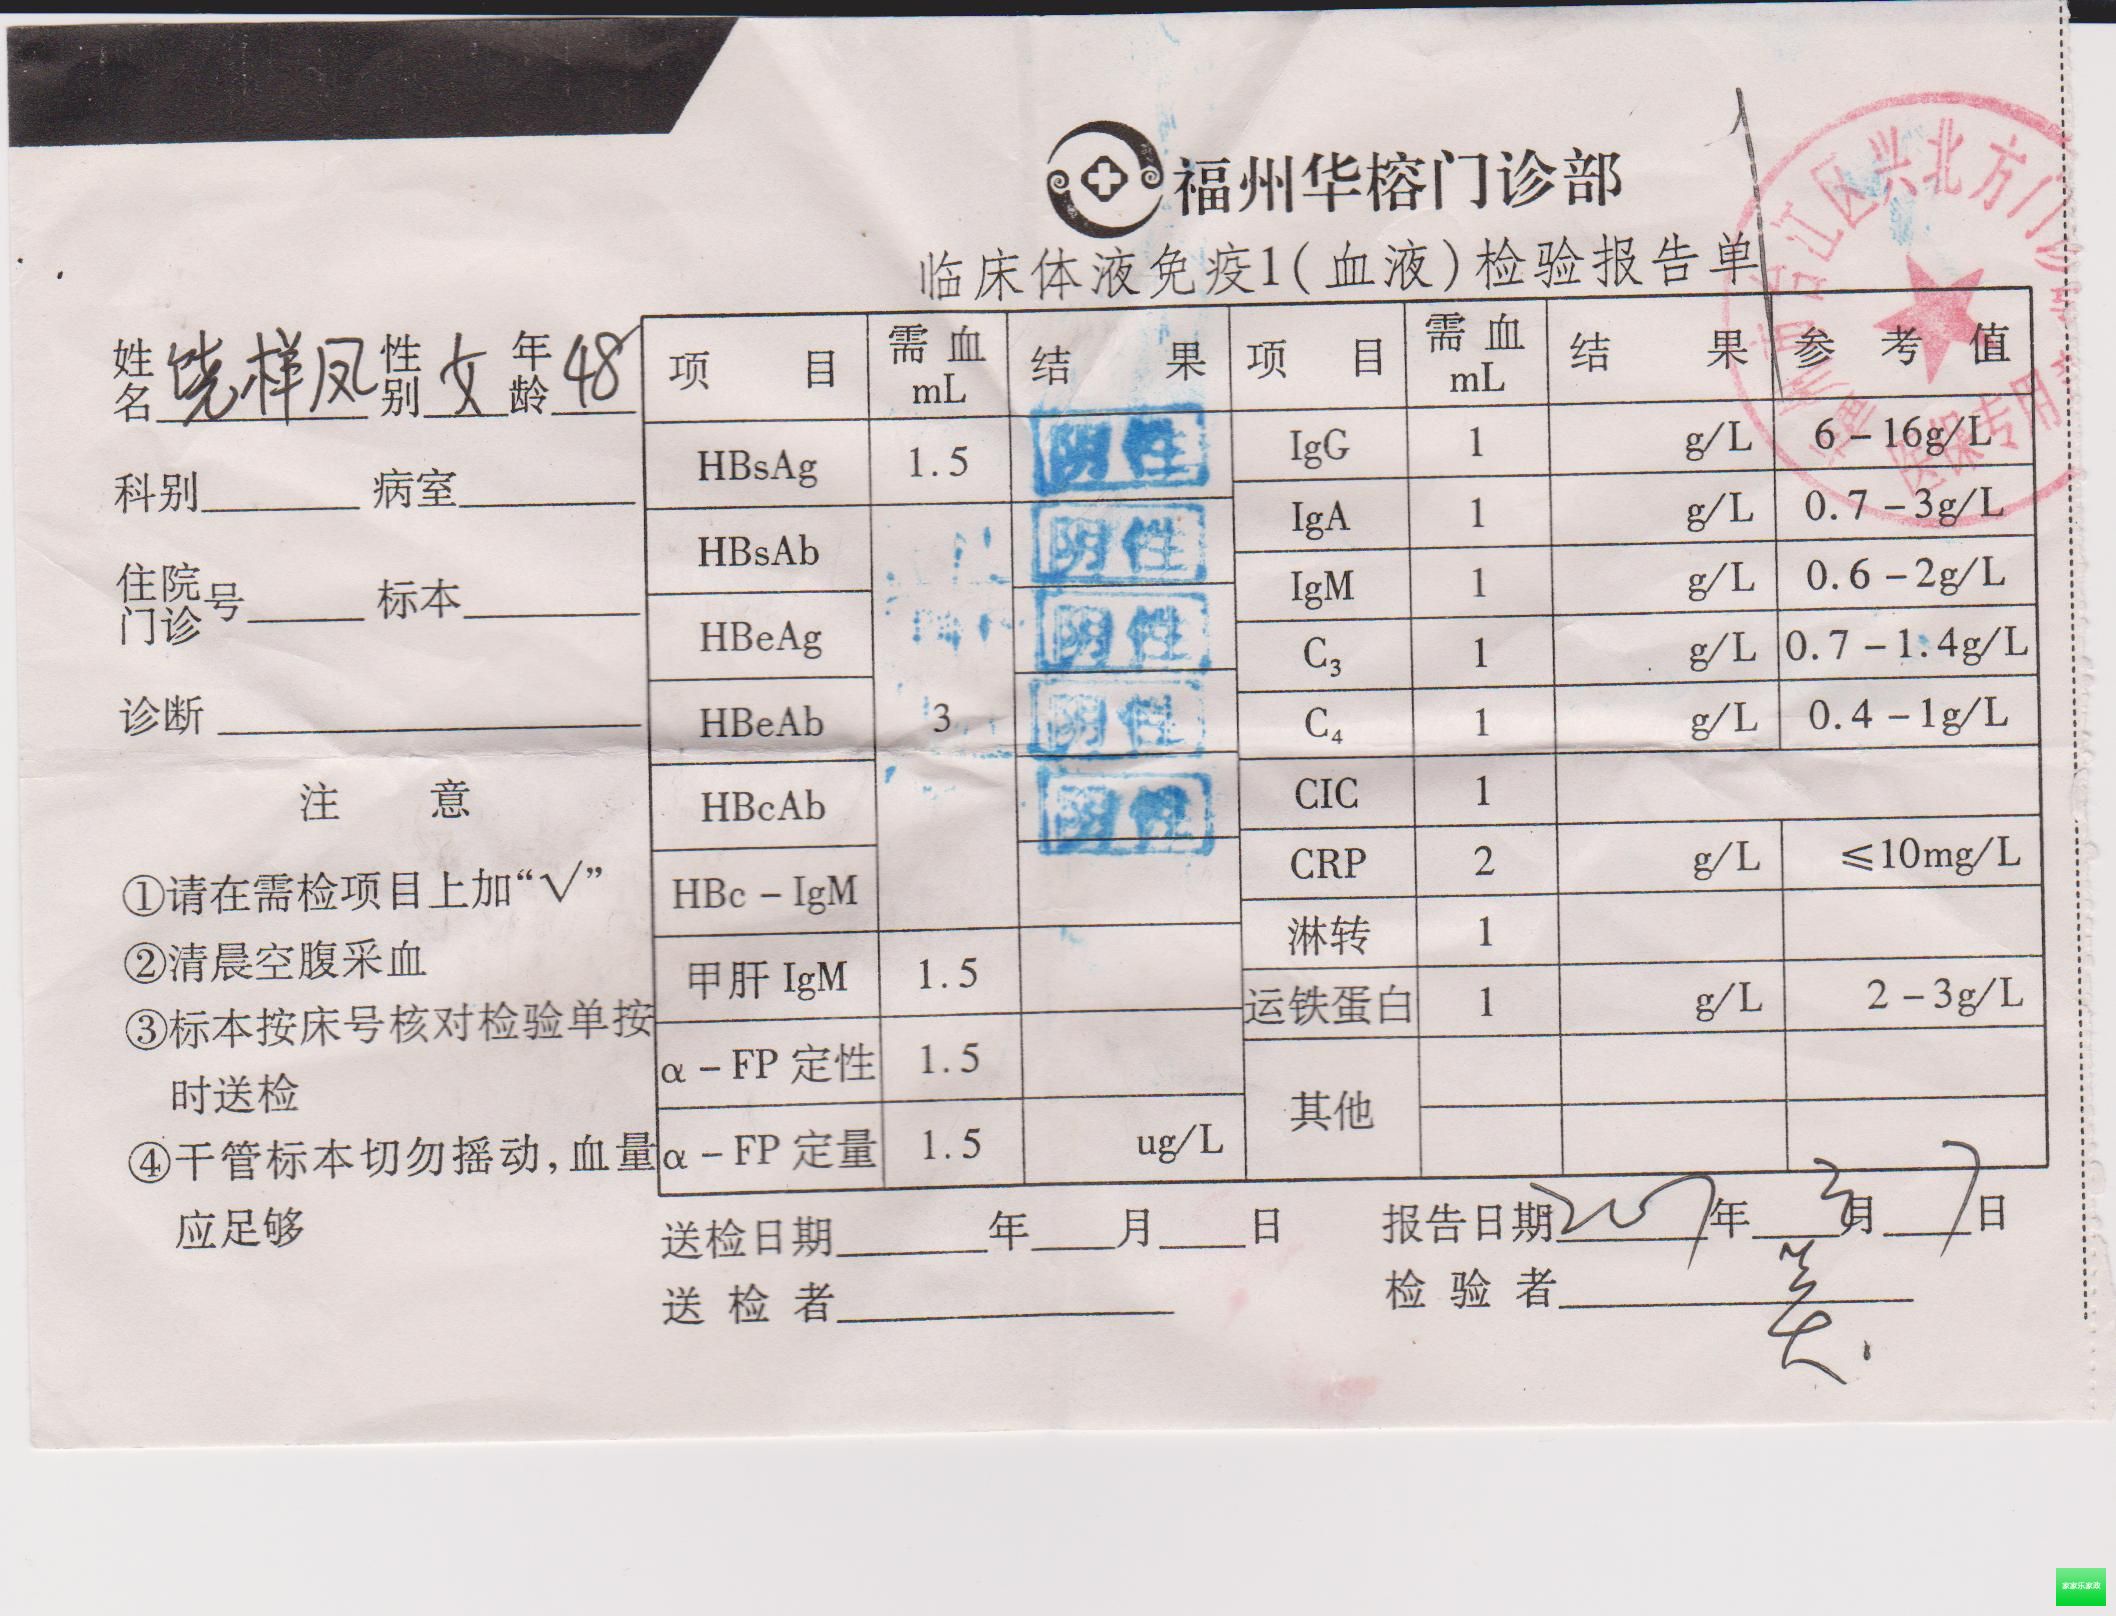 福州华榕门诊部
临床体液免疫1(血液)检验报告单
姓名 饶样凤 性别 女 年龄 48
科别 病室
住院门诊号 标本
诊断
注 意
①请在需检项目上加“√”
②清晨空腹采血
③标本按床号核对检验单按
时送检
④干管标本切勿摇动,血量
应足够
项 目 需血mL 结 果 项 目 需血mL 结 果 参 考 值
HBsAg 1.5 阴性 IgG 1 g/L 6-16g/L
HBsAb 阴性 IgA 1 g/L 0.7-3g/L
HBeAg 阴性 IgM 1 g/L 0.6-2g/L
HBeAb 3 阴性 C3 1 g/L 0.7-1.4g/L
HBcAb 阴性 C4 1 g/L 0.4-1g/L
HBc-IgM CIC 1
甲肝 IgM 1.5 CRP 2 g/L ≤10mg/L
α-FP 定性 1.5 淋转 1
α-FP 定量 1.5 ug/L 运铁蛋白 1 g/L 2-3g/L
其他
送检日期 年 月 日 报告日期 2017年3月7日
送 检 者 检 验 者
江区兴北方门诊
医保专用章
家家乐家政